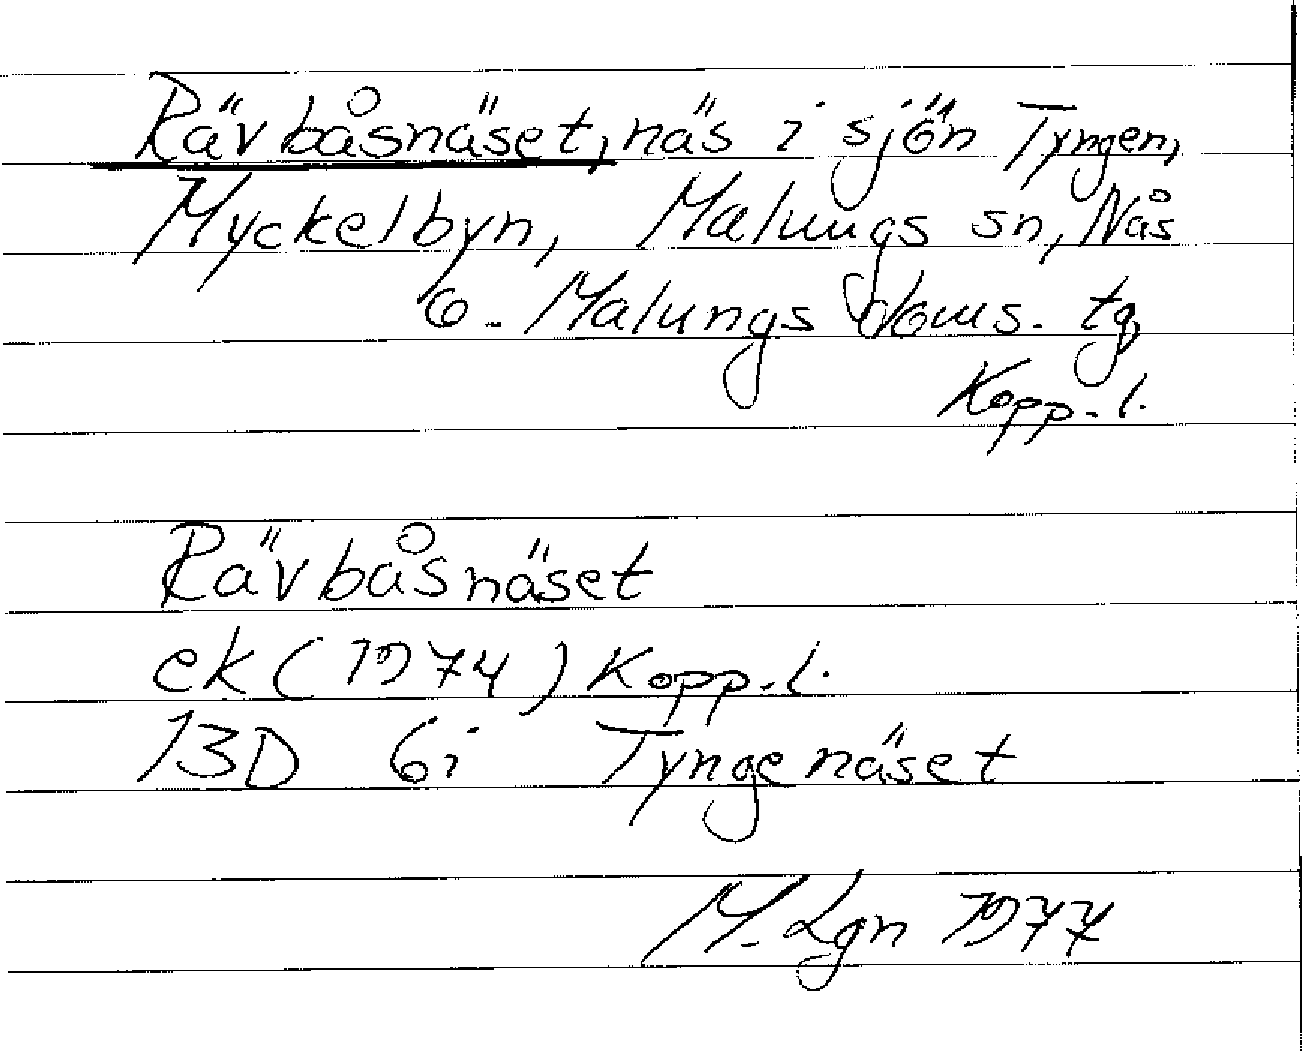 Rävbåsnäset, näs i sjön Tyngen,
Myckelbyn, Malungs sn, Nås
o. Malungs doms. tg,
Kopp. l.
Rävbåsnäset
ek (1974) Kopp. l.
13D 6i Tyngenäset
M. Lgn 1977